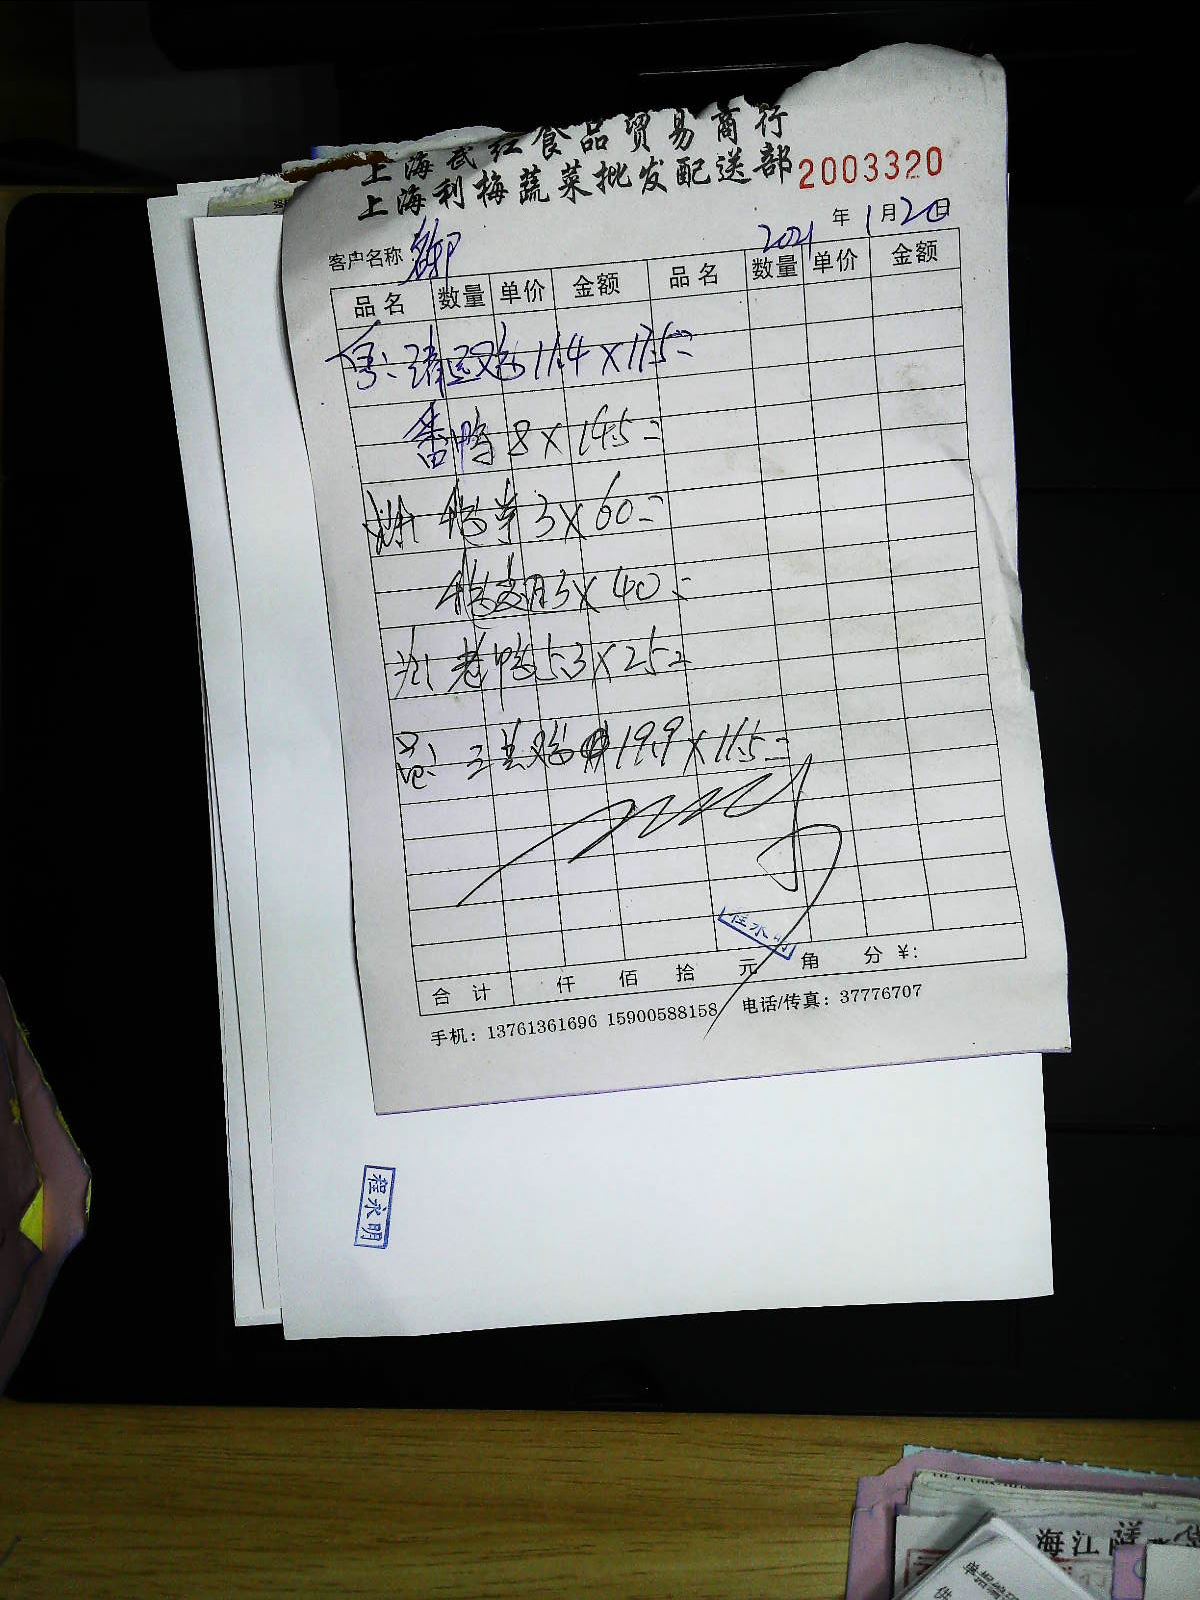 上海武红食品贸易商行
上海利梅蔬菜批发配送部 2003320
客户名称 2021 年 1 月 20 日
品名 数量 单价 金额 品名 数量 单价 金额
清远鸡 11.4 × 17.5 =
番鸭 8 × 14.5 =
3 × 60 =
3 × 40 =
老鸭 5.3 × 25 =
三黄鸡 19.9 × 11.5 =
程永明
合计 仟 佰 拾 元 角 分 ¥:
手机: 13761361696 15900588158 电话/传真: 37776707
程永明
海江
供